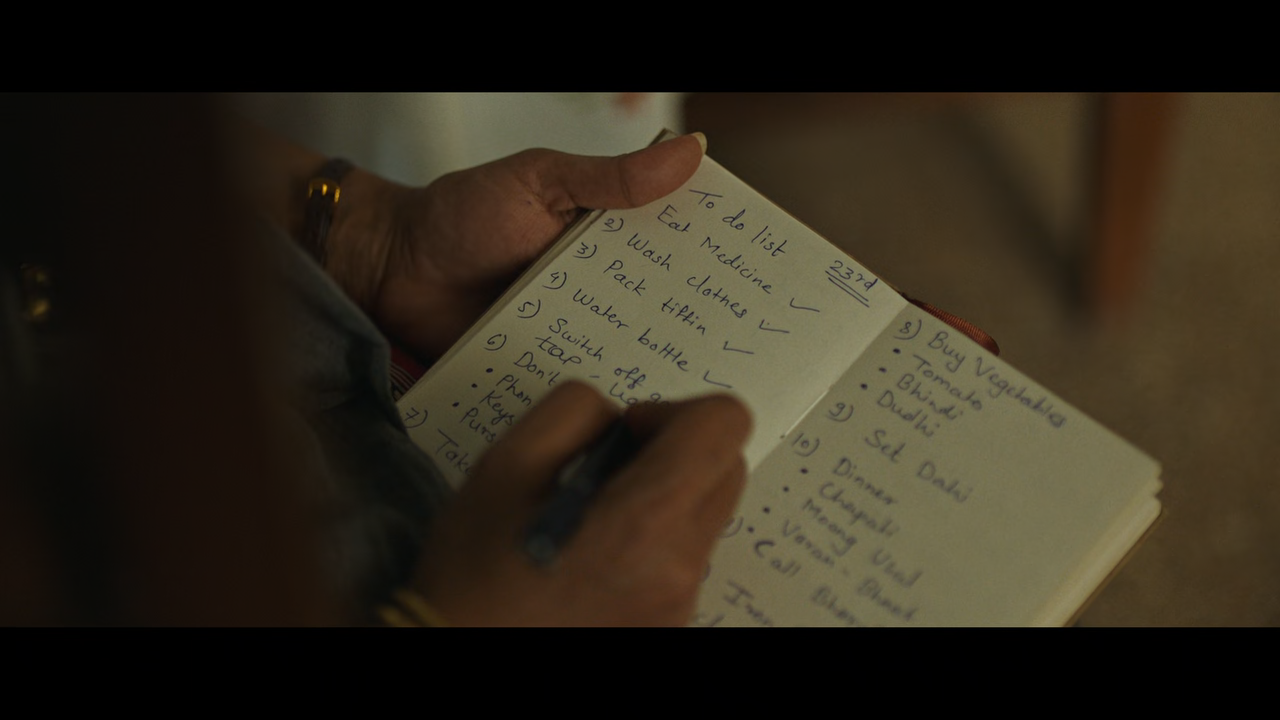 To do list
23rd
Eat Medicine ✓
2) Wash clothes ✓
3) Pack tiffin ✓
4) Water bottle ✓
5) Switch off
tap -
6) Don't
• Phon
• Keys
• Purs
7) Take
8) Buy Vegetables
• Tomato
• Bhindi
• Dudhi
9) Set Dahi
10) Dinner
• Chapati
• Moong Usal
• Varan - Bhaat
Call
Iron